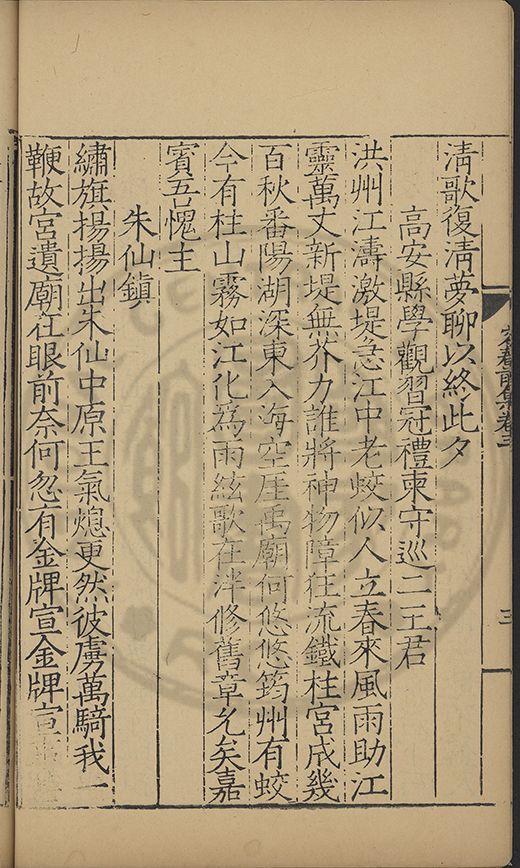 清歌復清夢聊以終此夕
高安縣學觀習冠禮柬守巡二王君
洪州江濤激堤急江中老蛟似人立春來風雨助江
靈萬丈新堤無芥力誰將神物障狂流鐵柱宮成幾
百秋番陽湖深東入海空厓禹廟何悠悠筠州有蛟
今有柱山霧如江化為雨絃歌在泮修舊章允矣嘉
賓吾愧主
朱仙鎮
繡旗揚揚出朱仙中原王氣熄更然彼虜萬騎我一
鞭故宮遺廟在眼前奈何忽有金牌宣金牌宣
前集卷三
三